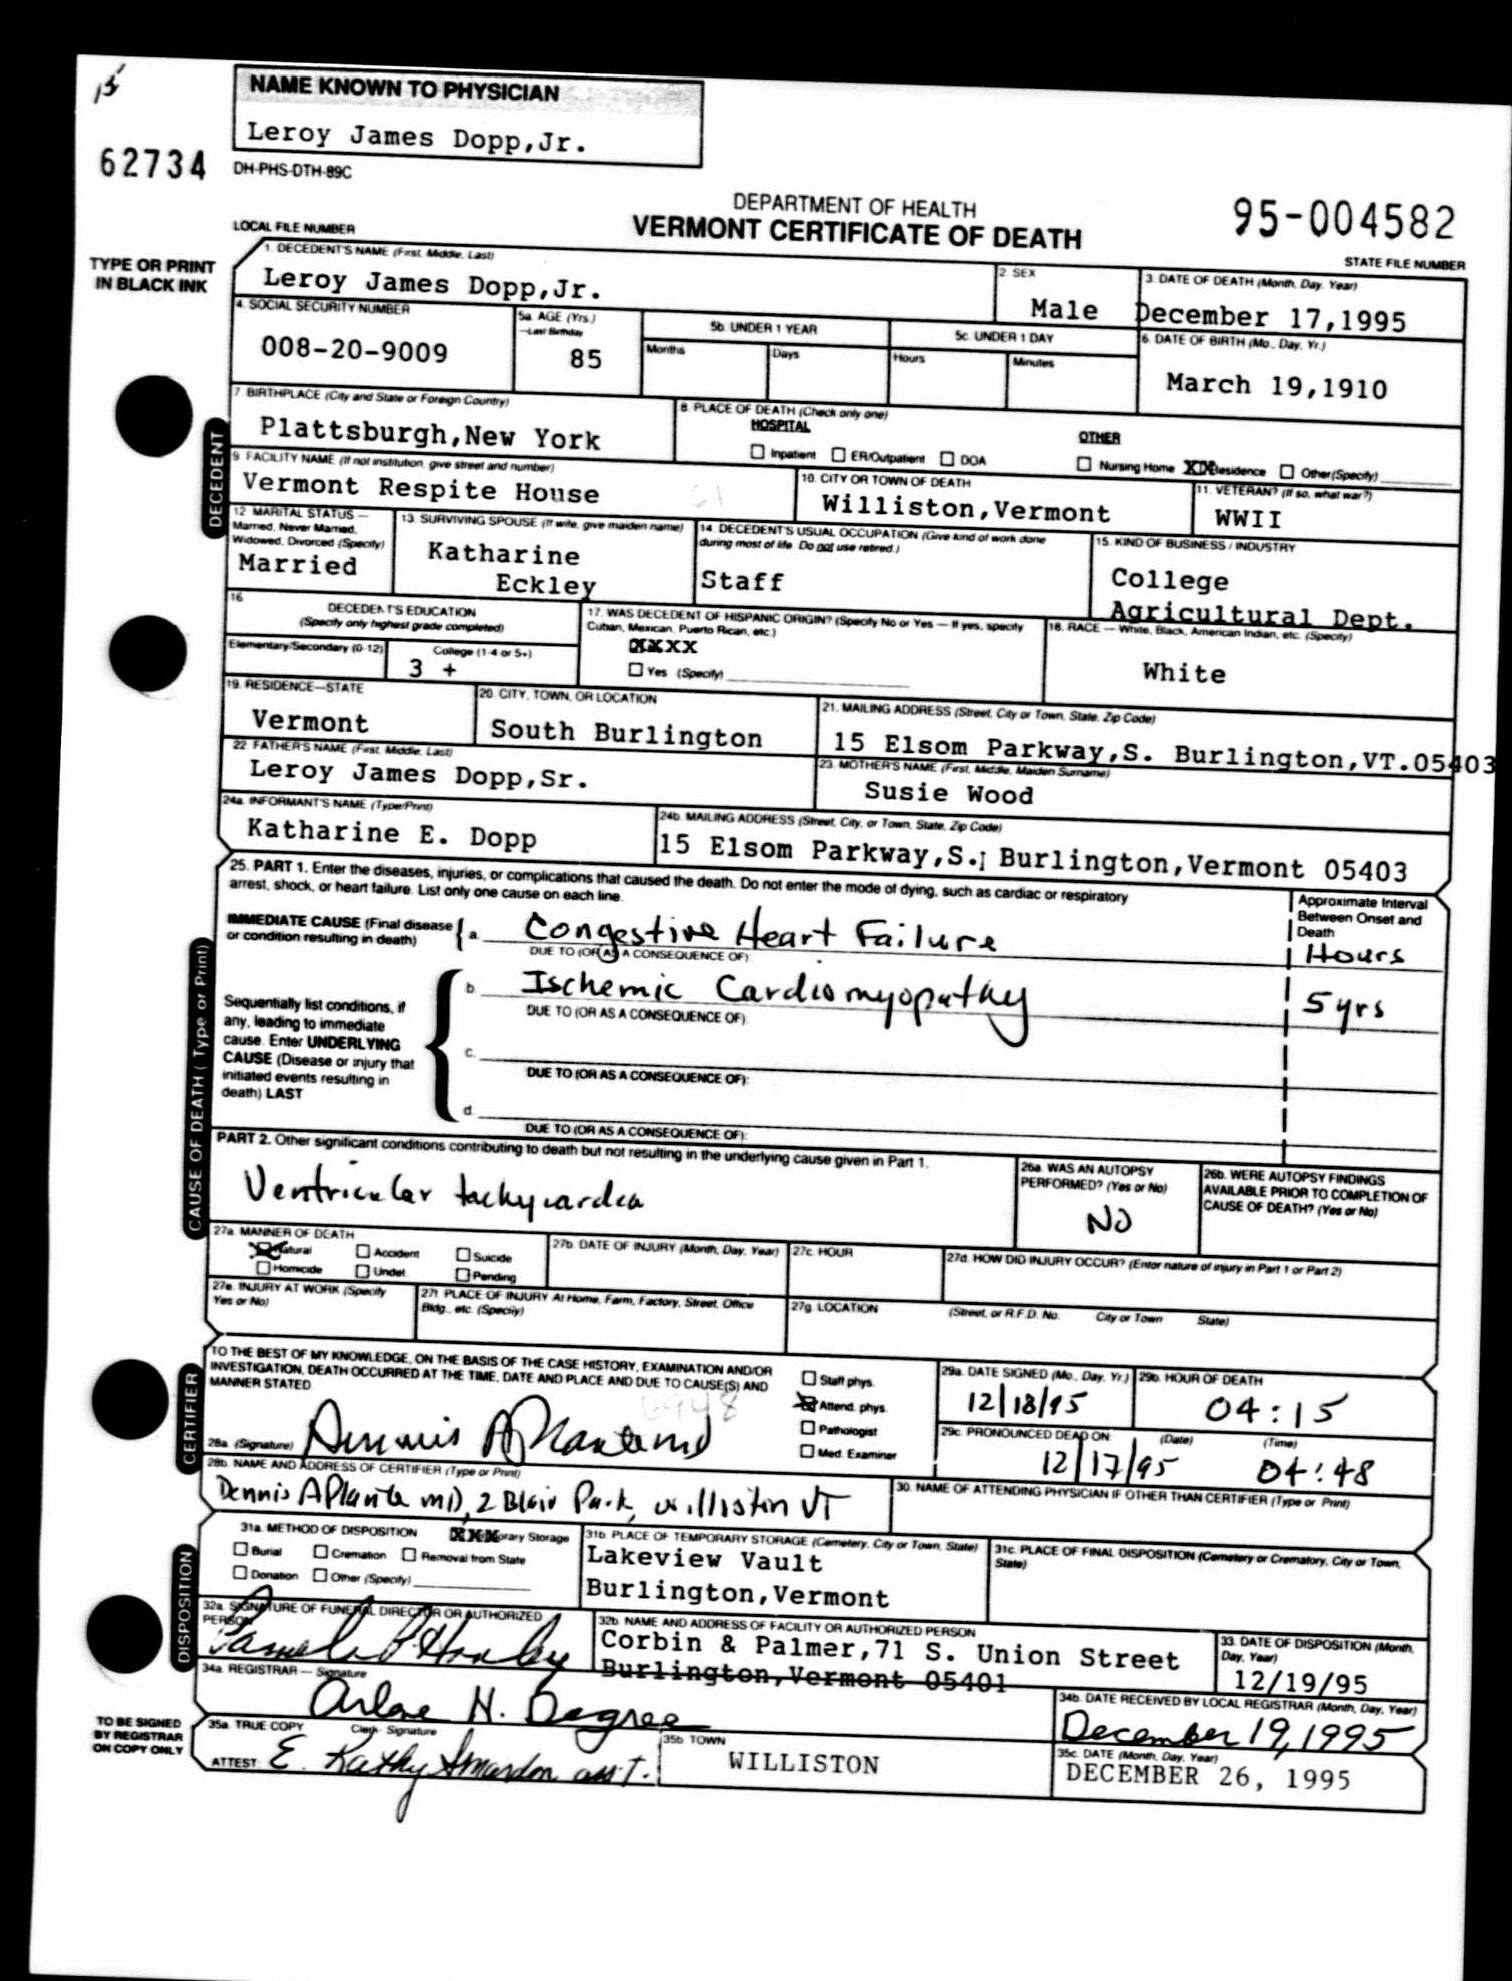 NAME KNOWN TO PHYSICIAN
Leroy James Dopp,Jr.
62734
DH-PHS-DTH-89C
DEPARTMENT OF HEALTH
VERMONT CERTIFICATE OF DEATH
95-004582
LOCAL FILE NUMBER
STATE FILE NUMBER
TYPE OR PRINT
IN BLACK INK
1. DECEDENT'S NAME (First, Middle, Last)
Leroy James Dopp,Jr.
2. SEX
Male
3. DATE OF DEATH (Month, Day, Year)
December 17,1995
4. SOCIAL SECURITY NUMBER
008-20-9009
5a. AGE (Yrs.)
—Last Birthday
85
5b. UNDER 1 YEAR
Months
Days
5c. UNDER 1 DAY
Hours
Minutes
6. DATE OF BIRTH (Mo., Day, Yr.)
March 19,1910
7. BIRTHPLACE (City and State or Foreign Country)
Plattsburgh,New York
8. PLACE OF DEATH (Check only one)
HOSPITAL
Inpatient
ER/Outpatient
DOA
OTHER
Nursing Home
XX Residence
Other (Specify)
DECEDENT
9. FACILITY NAME (If not institution, give street and number)
Vermont Respite House
10. CITY OR TOWN OF DEATH
Williston,Vermont
11. VETERAN? (If so, what war?)
WWII
12. MARITAL STATUS —
Married, Never Married,
Widowed, Divorced (Specify)
Married
13. SURVIVING SPOUSE (If wife, give maiden name)
Katharine
Eckley
14. DECEDENT'S USUAL OCCUPATION (Give kind of work done
during most of life. Do not use retired.)
Staff
15. KIND OF BUSINESS / INDUSTRY
College
Agricultural Dept.
16.
DECEDENT'S EDUCATION
(Specify only highest grade completed)
Elementary/Secondary (0-12)
College (1-4 or 5+)
3 +
17. WAS DECEDENT OF HISPANIC ORIGIN? (Specify No or Yes — If yes, specify
Cuban, Mexican, Puerto Rican, etc.)
XXXX
Yes (Specify)
18. RACE — White, Black, American Indian, etc. (Specify)
White
19. RESIDENCE—STATE
Vermont
20. CITY, TOWN, OR LOCATION
South Burlington
21. MAILING ADDRESS (Street, City or Town, State, Zip Code)
15 Elsom Parkway,S. Burlington,VT.05403
22. FATHER'S NAME (First, Middle, Last)
Leroy James Dopp,Sr.
23. MOTHER'S NAME (First, Middle, Maiden Surname)
Susie Wood
24a. INFORMANT'S NAME (Type/Print)
Katharine E. Dopp
24b. MAILING ADDRESS (Street, City, or Town, State, Zip Code)
15 Elsom Parkway,S. Burlington,Vermont 05403
25. PART 1. Enter the diseases, injuries, or complications that caused the death. Do not enter the mode of dying, such as cardiac or respiratory
arrest, shock, or heart failure. List only one cause on each line.
Approximate Interval
Between Onset and
Death
IMMEDIATE CAUSE (Final disease
or condition resulting in death)
a. Congestive Heart Failure
Hours
DUE TO (OR AS A CONSEQUENCE OF):
b. Ischemic Cardiomyopathy
5 yrs
DUE TO (OR AS A CONSEQUENCE OF):
Sequentially list conditions, if
any, leading to immediate
cause. Enter UNDERLYING
CAUSE (Disease or injury that
initiated events resulting in
death) LAST
c.
DUE TO (OR AS A CONSEQUENCE OF):
d.
DUE TO (OR AS A CONSEQUENCE OF):
CAUSE OF DEATH (Type or Print)
PART 2. Other significant conditions contributing to death but not resulting in the underlying cause given in Part 1.
Ventricular tachycardia
26a. WAS AN AUTOPSY
PERFORMED? (Yes or No)
NO
26b. WERE AUTOPSY FINDINGS
AVAILABLE PRIOR TO COMPLETION OF
CAUSE OF DEATH? (Yes or No)
27a. MANNER OF DEATH
Natural
Accident
Suicide
Homicide
Undet.
Pending
27b. DATE OF INJURY (Month, Day, Year)
27c. HOUR
27d. HOW DID INJURY OCCUR? (Enter nature of injury in Part 1 or Part 2)
27e. INJURY AT WORK (Specify
Yes or No)
27f. PLACE OF INJURY At Home, Farm, Factory, Street, Office
Bldg., etc. (Specify)
27g. LOCATION
(Street, or R.F.D. No.
City or Town
State)
CERTIFIER
TO THE BEST OF MY KNOWLEDGE, ON THE BASIS OF THE CASE HISTORY, EXAMINATION AND/OR
INVESTIGATION, DEATH OCCURRED AT THE TIME, DATE AND PLACE AND DUE TO CAUSE(S) AND
MANNER STATED
28a. (Signature) Dennis A Plante md
Staff phys.
Attend. phys.
Pathologist
Med. Examiner
29a. DATE SIGNED (Mo., Day, Yr.)
12/18/95
29b. HOUR OF DEATH
04:15
29c. PRONOUNCED DEAD ON:
(Date)
(Time)
12/17/95
04:48
28b. NAME AND ADDRESS OF CERTIFIER (Type or Print)
Dennis A Plante MD, 2 Blair Park, Williston VT
30. NAME OF ATTENDING PHYSICIAN IF OTHER THAN CERTIFIER (Type or Print)
DISPOSITION
31a. METHOD OF DISPOSITION
XXX orary Storage
Burial
Cremation
Removal from State
Donation
Other (Specify)
31b. PLACE OF TEMPORARY STORAGE (Cemetery, City or Town, State)
Lakeview Vault
Burlington,Vermont
31c. PLACE OF FINAL DISPOSITION (Cemetery or Crematory, City or Town,
State)
32a. SIGNATURE OF FUNERAL DIRECTOR OR AUTHORIZED
PERSON
32b. NAME AND ADDRESS OF FACILITY OR AUTHORIZED PERSON
Corbin & Palmer,71 S. Union Street
Burlington,Vermont 05401
33. DATE OF DISPOSITION (Month,
Day, Year)
12/19/95
34a. REGISTRAR — Signature
Arlene H. Degree
34b. DATE RECEIVED BY LOCAL REGISTRAR (Month, Day, Year)
December 19, 1995
TO BE SIGNED
BY REGISTRAR
ON COPY ONLY
35a. TRUE COPY
Clerk- Signature
ATTEST: E. Kathy Smardon asst.
35b. TOWN
WILLISTON
35c. DATE (Month, Day, Year)
DECEMBER 26, 1995